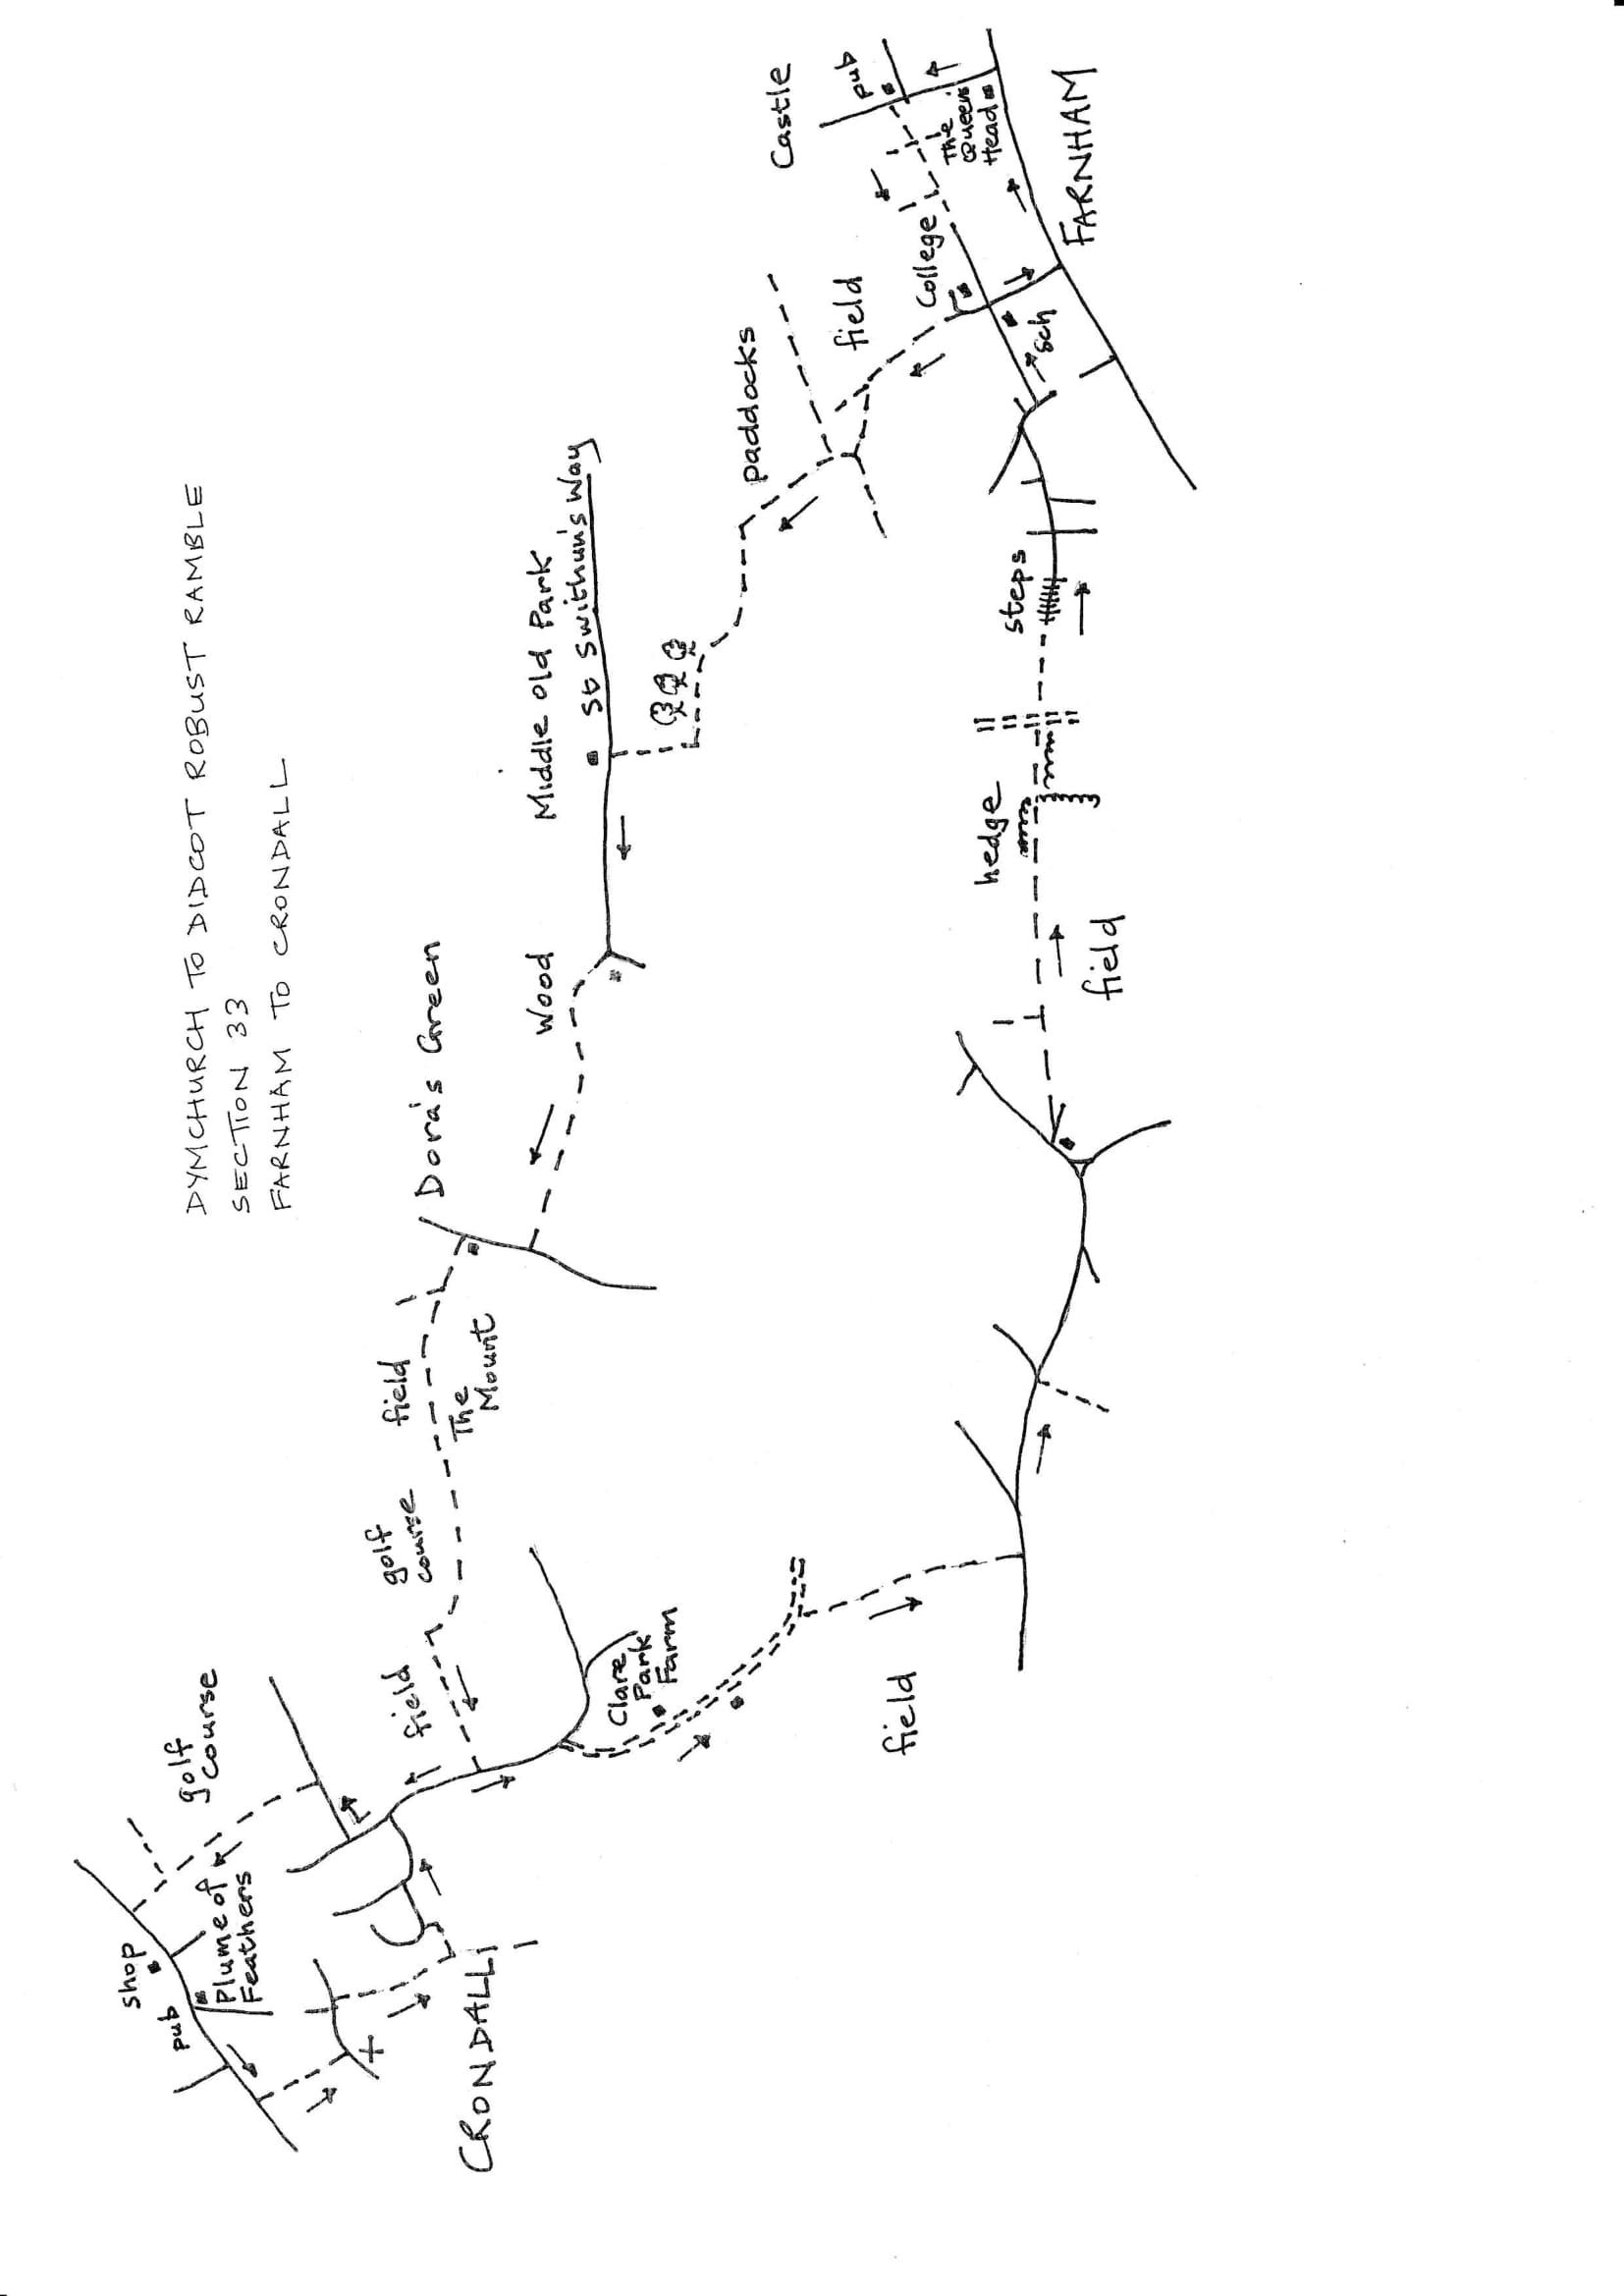 DYMCHURCH TO DIDCOT ROBUST RAMBLE
SECTION 33
FARNHAM TO CRONDALL
shop
pub
Plume of
Feathers
golf
course
CRONDALL
field
golf
course
field
The
Mount
Dora's Green
Wood
Middle Old Park
St Swithun's Way
Clare
Park
Farm
paddocks
Castle
pub
field
College
The
Queens
Head
field
hedge
steps
sch
field
FARNHAM